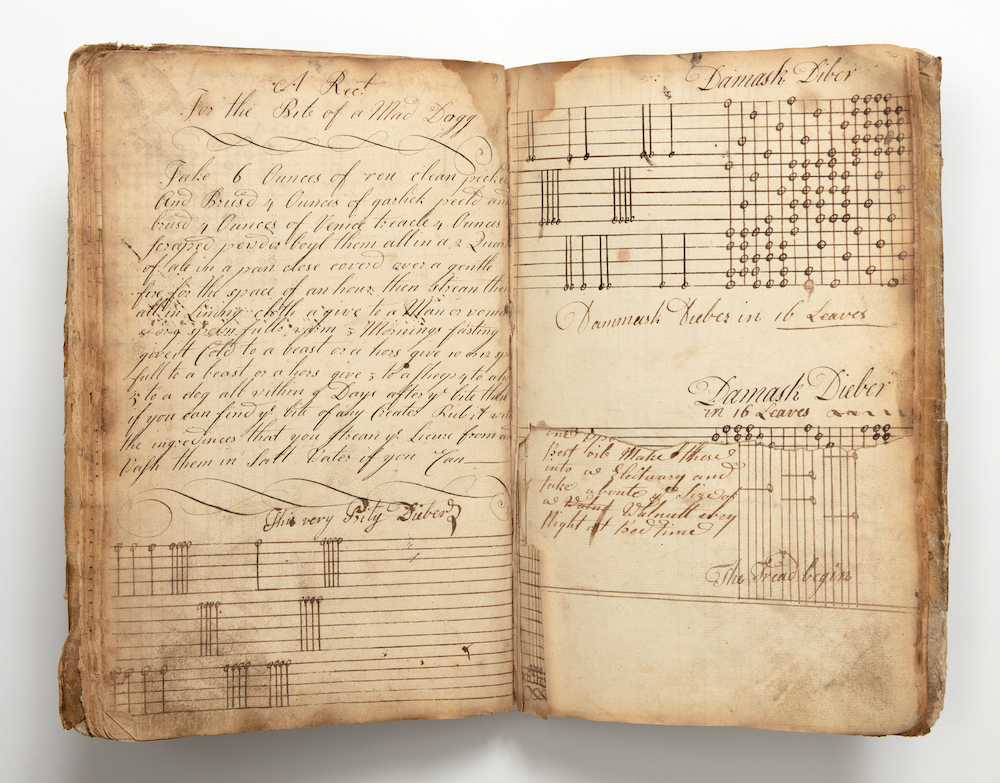 A Rect
For the Bite of a Mad Dogg
Take 6 Ounces of reu clean pecke
And Brusd 4 Ounces of garlick peeld and
brusd 4 Ounces of Venice treacle 4 Ounces
scraped pewder boyl them all in a 2 Quar
of ale in a pan close coverd over a gentle
fire for the space of an hour then strean the
all in Lining cloth a give to a Man or
spoon fulls 3 Mornings fasting
give it Cold to a beast or a hors give 10 or 12
full to a beast or a hors give 5 to a sheep 4 to a
5 to a dog all within 9 Days after ye bite then
if you can find ye bite of any Creater Rub it
the ingredinces that you strean ye Licure from
Vash them in Salt Vater if you Can
This very Prity Dieber
Damask Diber
Dammask Dieber in 16 Leaves
Damask Dieber
in 16 Leaves
Best Make These
into a Elictuary and
take aboute ye Size of
a Walnutt every
Night at Bed time
The Tread begin